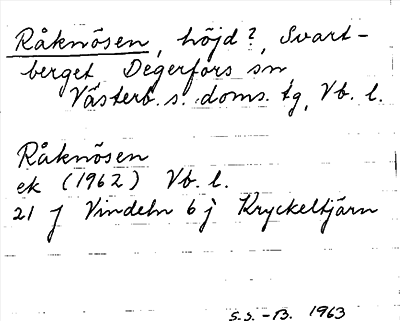 Råknösen, höjd?, Svart-
berget, Degerfors sn
Västerb. s. doms. tg, Vb. l.
Råknösen
ek (1962) Vb. l.
21 J Vindeln 6 j Kryckeltjärn
S.S. -B. 1963